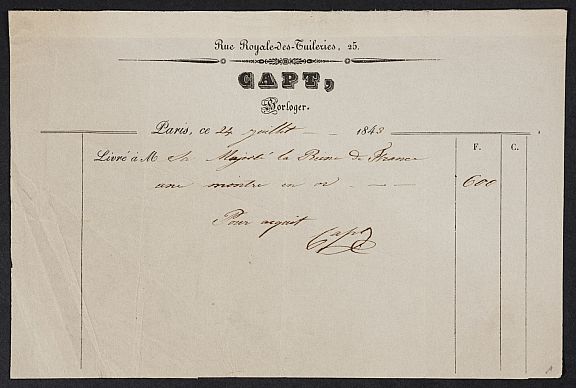 Rue Royale-des-Tuileries, 25.
CAPT,
Horloger.
Paris, ce 24 juillet 1843
F. C.
Livré à M Sa Majesté la Reine de France
une montre en or 600
Pour acquit
Capt